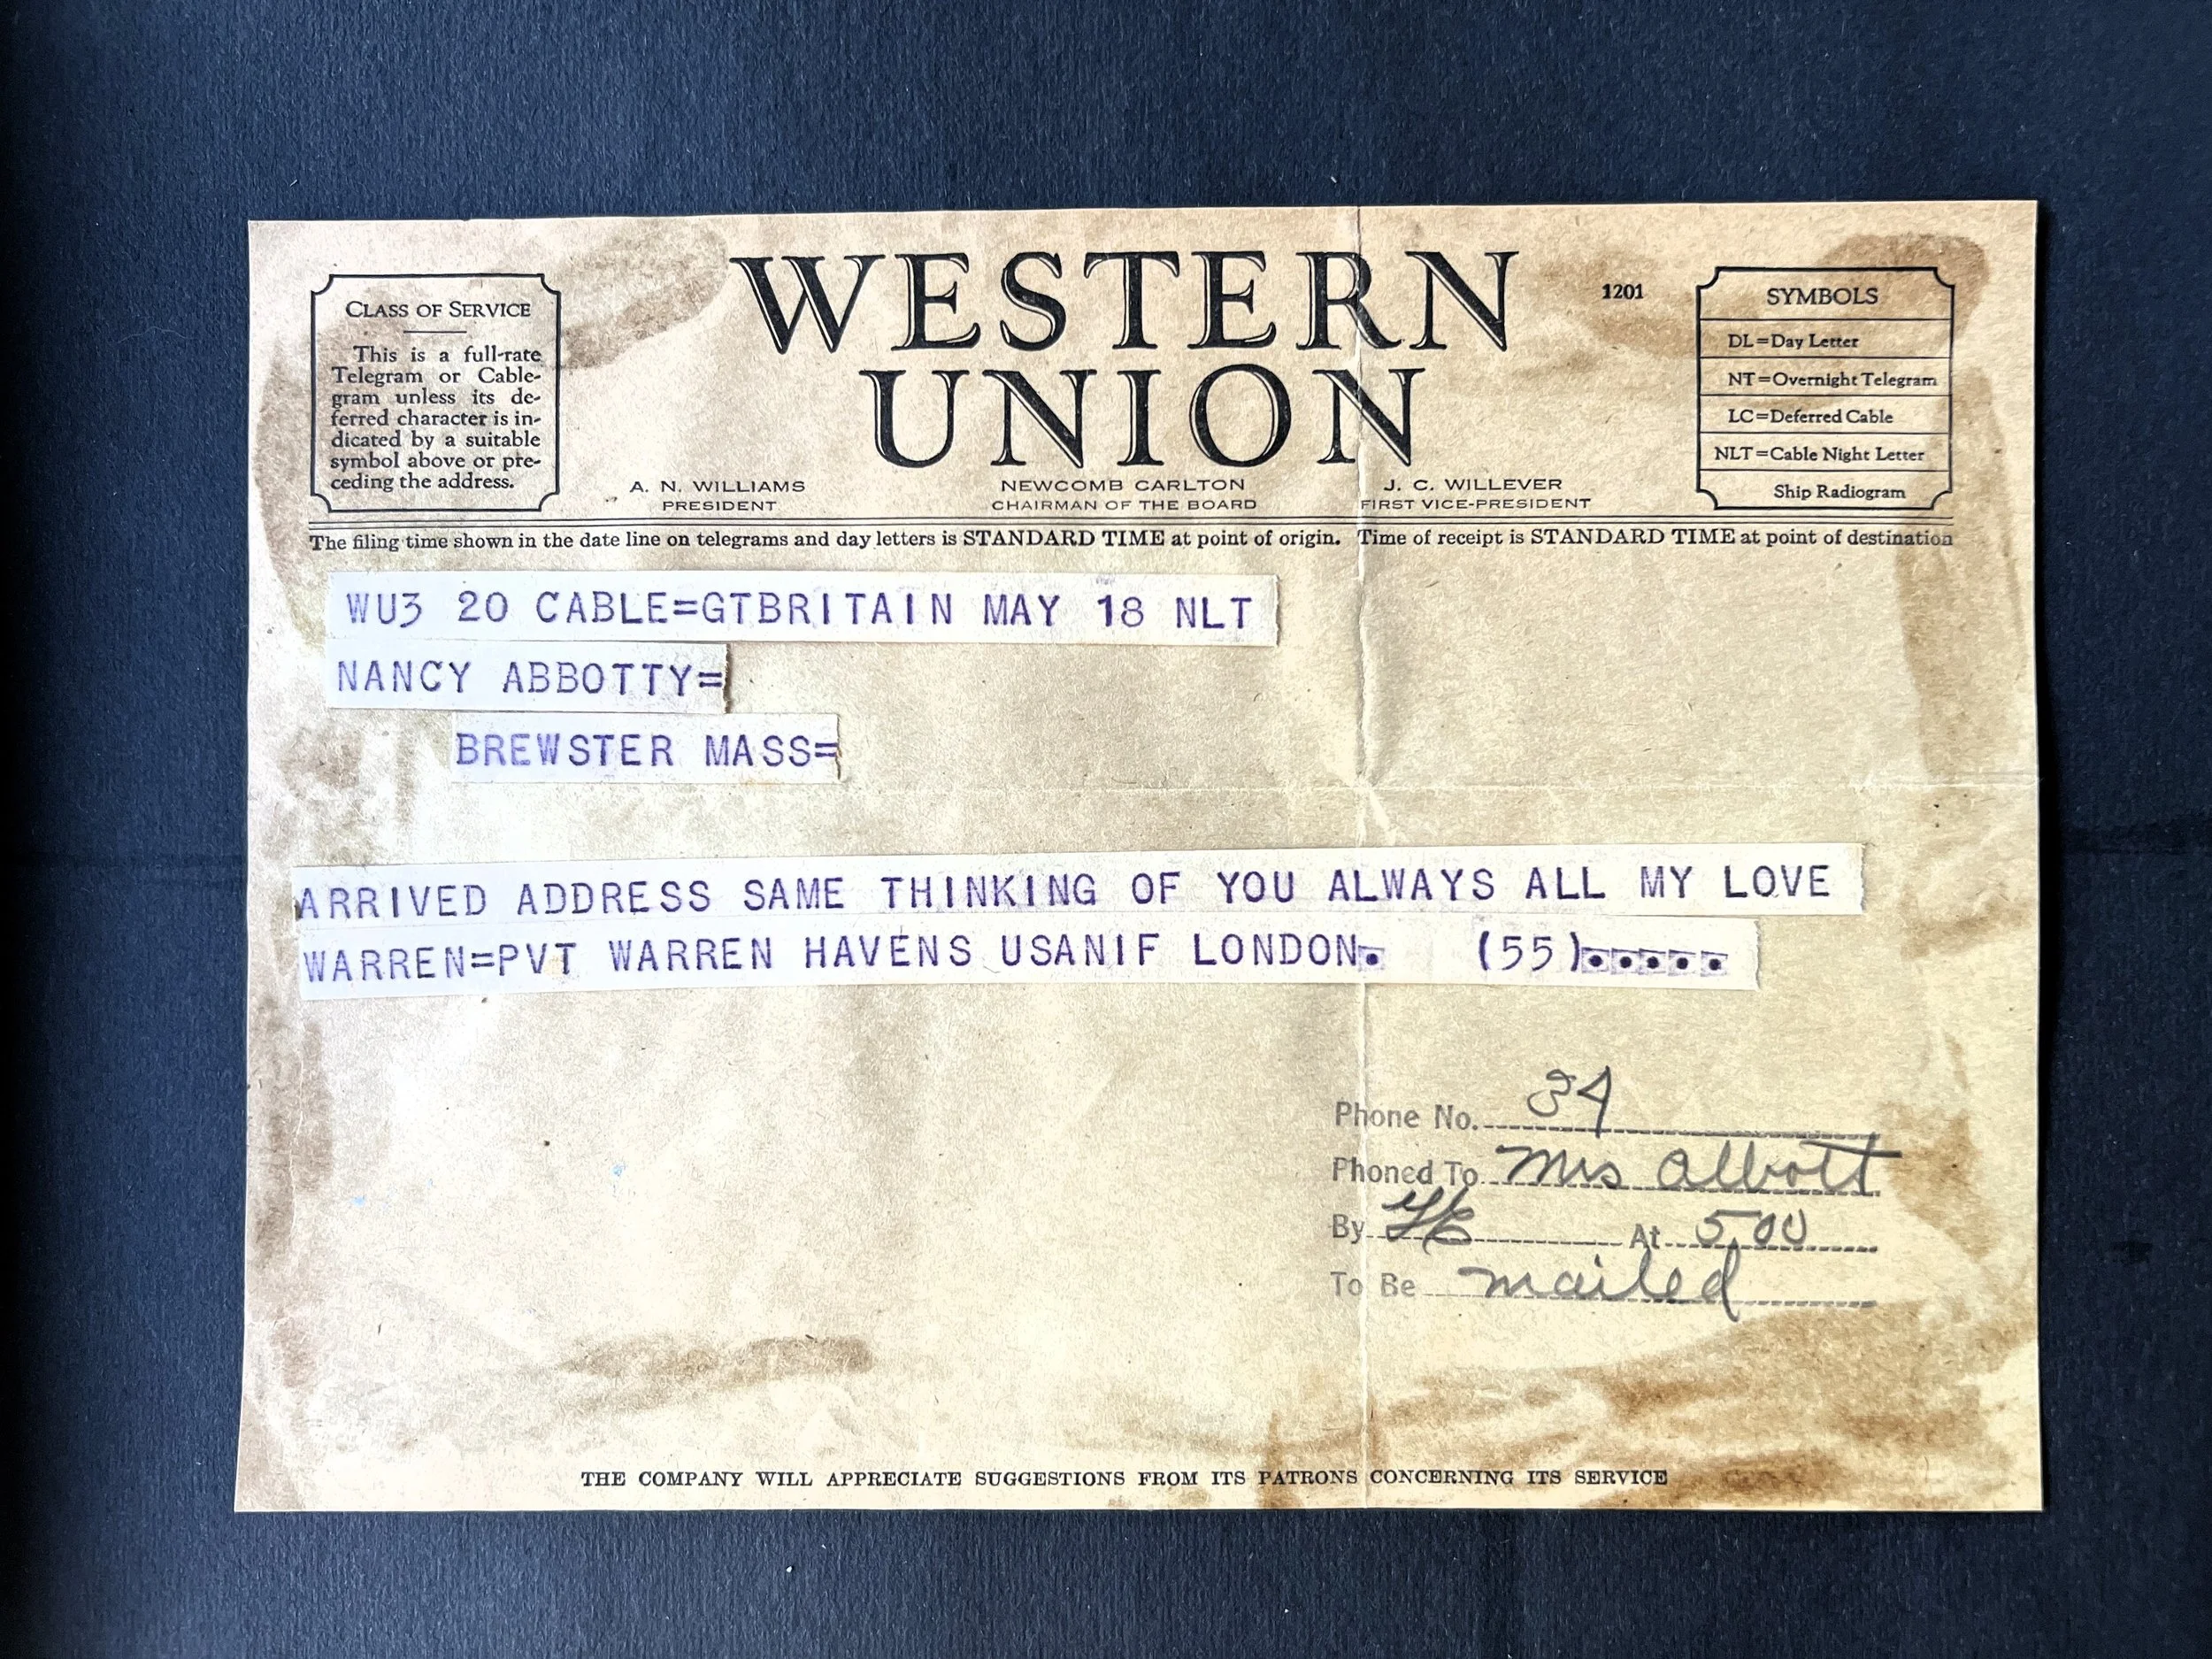 WESTERN
UNION
1201
CLASS OF SERVICE
This is a full-rate
Telegram or Cable-
gram unless its de-
ferred character is in-
dicated by a suitable
symbol above or pre-
ceding the address.
SYMBOLS
DL=Day Letter
NT=Overnight Telegram
LC=Deferred Cable
NLT=Cable Night Letter
Ship Radiogram
A. N. WILLIAMS
PRESIDENT
NEWCOMB CARLTON
CHAIRMAN OF THE BOARD
J. C. WILLEVER
FIRST VICE-PRESIDENT
The filing time shown in the date line on telegrams and day letters is STANDARD TIME at point of origin. Time of receipt is STANDARD TIME at point of destination
WU3 20 CABLE=GTBRITAIN MAY 18 NLT
NANCY ABBOTTY=
BREWSTER MASS=
ARRIVED ADDRESS SAME THINKING OF YOU ALWAYS ALL MY LOVE
WARREN=PVT WARREN HAVENS USANIF LONDON. (55).....
Phone No. 34
Phoned To Mrs Abbott
By At 5.00
To Be mailed
THE COMPANY WILL APPRECIATE SUGGESTIONS FROM ITS PATRONS CONCERNING ITS SERVICE